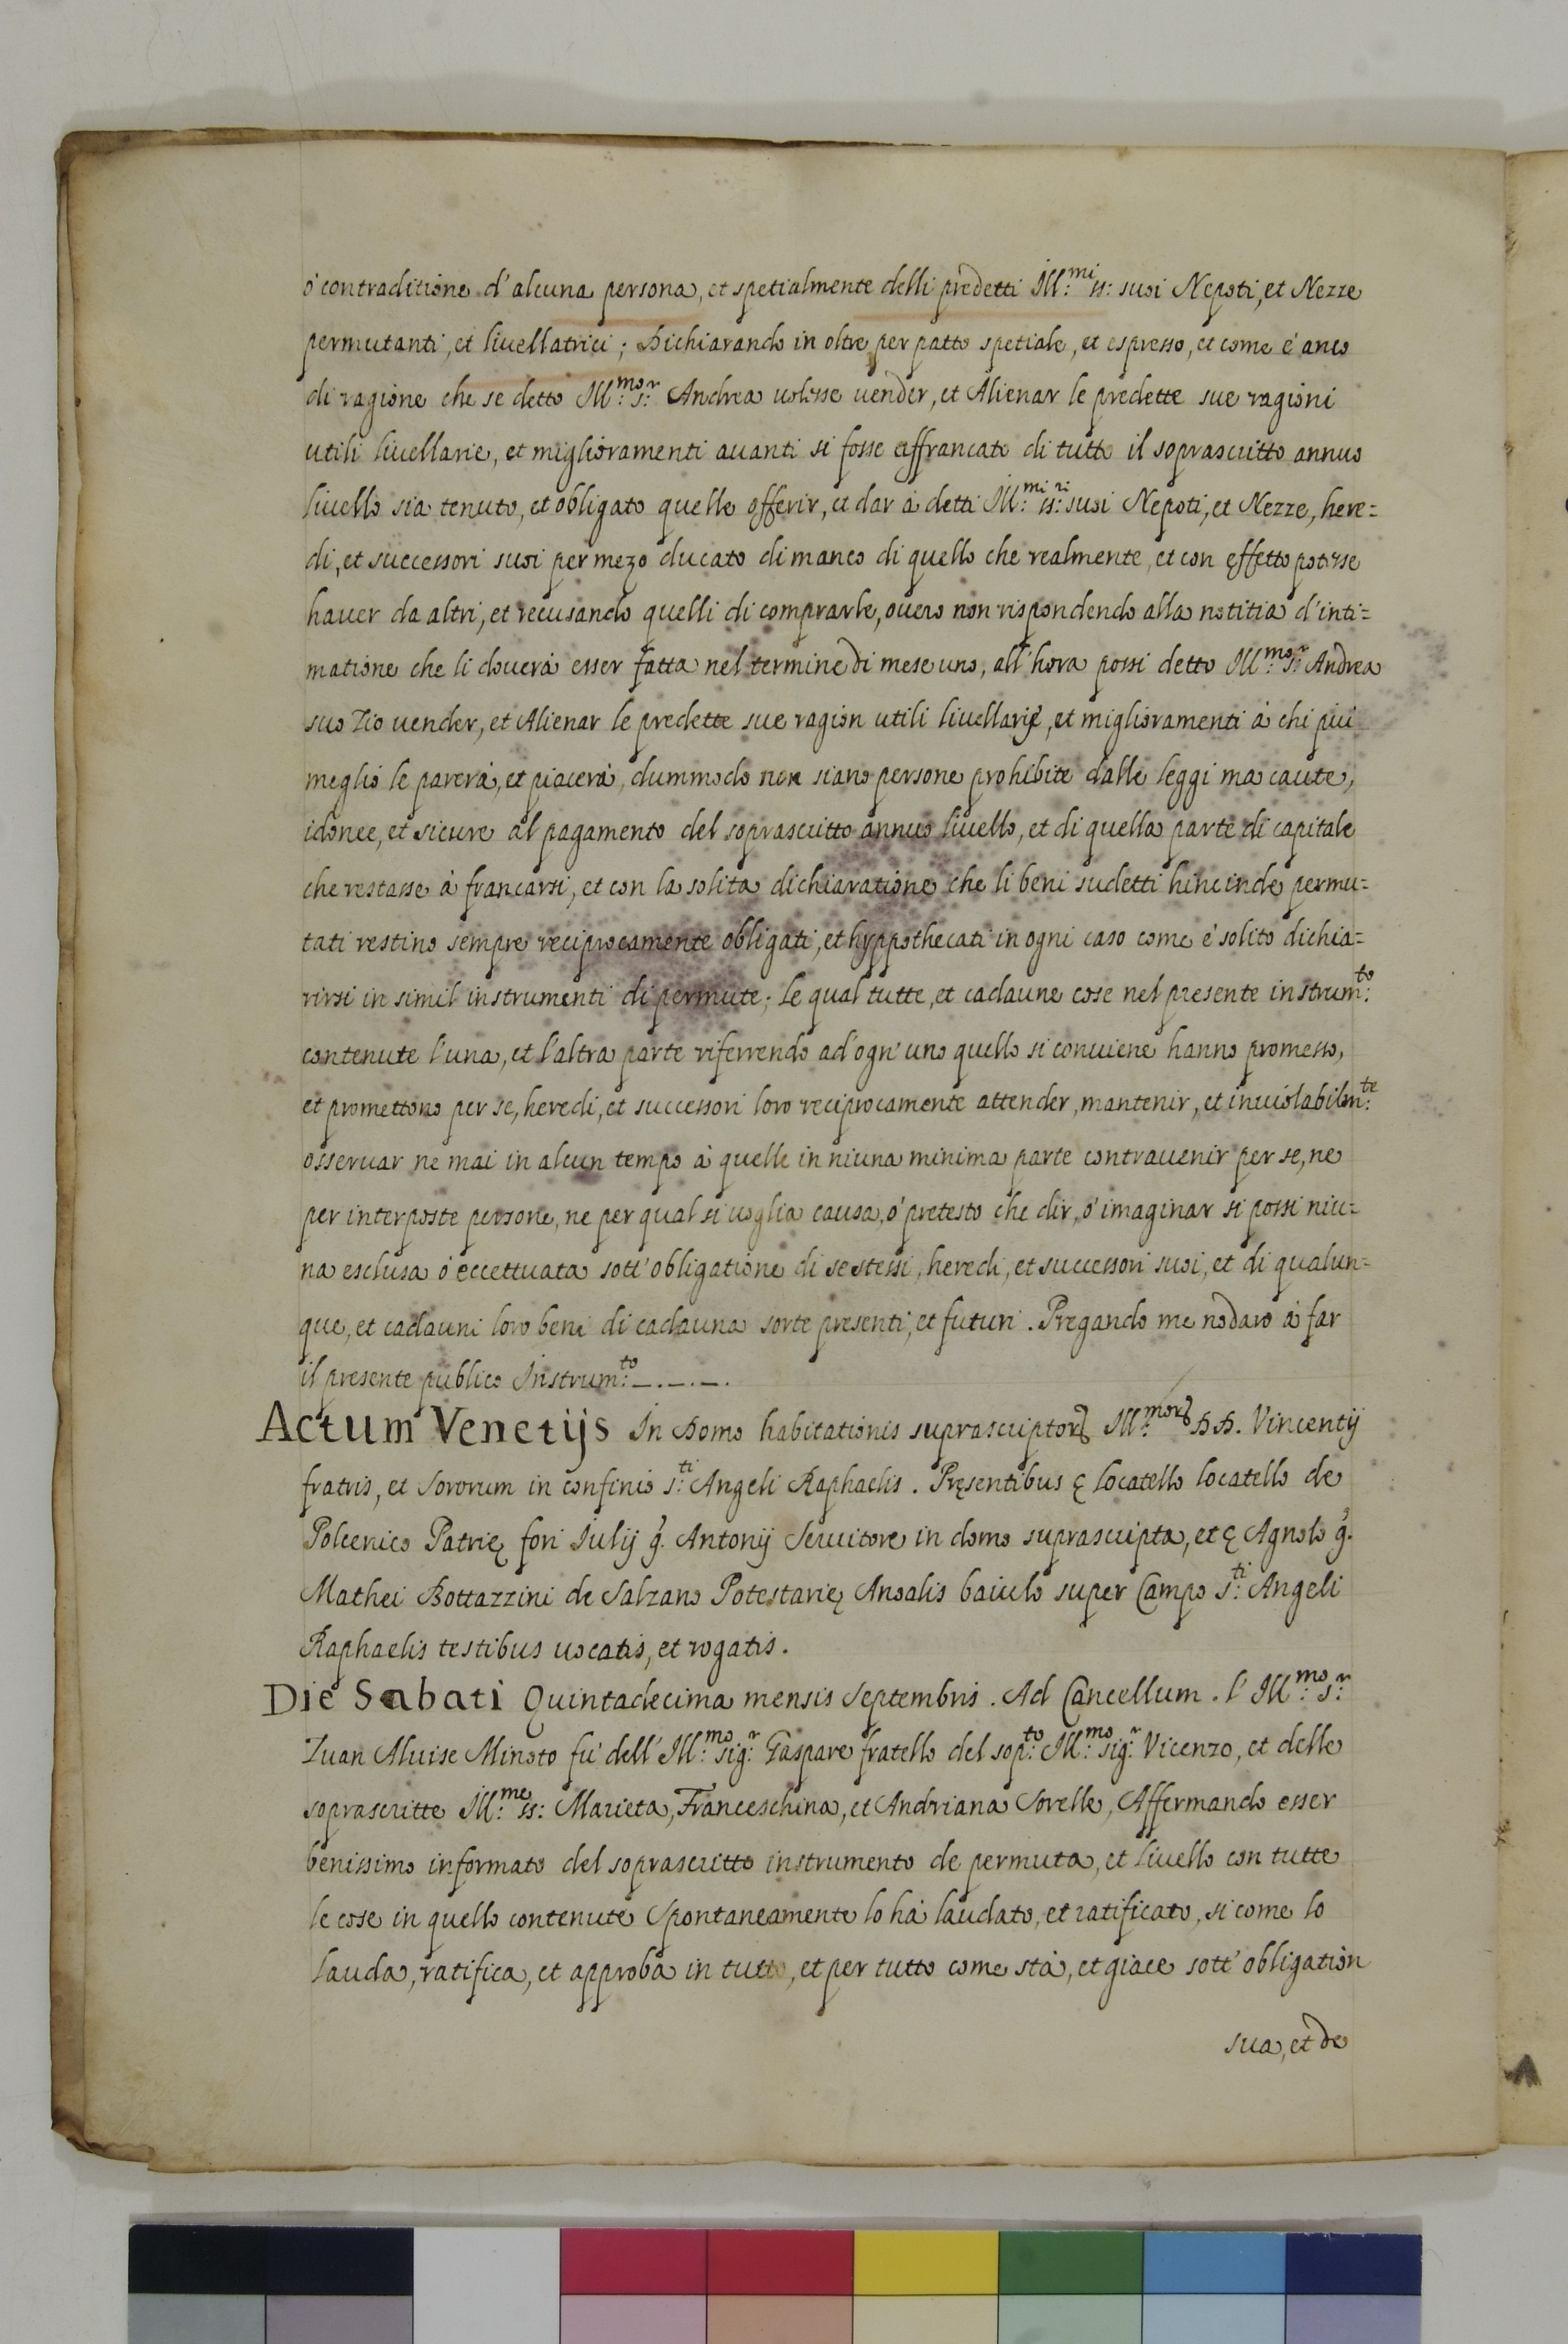 ò contraditione d'alcuna persona, et spetialmente delli predetti Ill:mi ss: suoi Nepoti, et Nezze
permutanti, et liuellatrici; Dichiarando in oltre per patto spetiale, et espresso, et come è anco
di ragione che se detto Ill:mo s:r Andrea uolesse uender, et Alienar le predette sue ragioni
utili liuellarie, et miglioramenti auanti si fosse affrancato di tutto il soprascritto annuo
liuello sia tenuto, et obligato quelle offerir, et dar à detti Ill:mi ss:ri suoi Nepoti, et Nezze, here=
di, et successori suoi per mezo ducato di manco di quello che realmente, et con effetto potesse
hauer da altri, et recusando quelli di comprarle, ouero non rispondendo alla notitia d'inti=
matione che li douerà esser fatta nel termine di mese uno, all'hora possi detto Ill:mo s:r Andrea
suo Zio uender, et Alienar le predette sue ragion utili liuellarie, et miglioramenti à chi più
meglio le parerà, et piacerà, dummodo non siano persone prohibite dalle leggi ma caute,
idonee, et sicure al pagamento del soprascritto annuo liuello, et di quella parte di capitale
che restasse à francarsi, et con la solita dichiaratione che li beni sudetti hinc inde permu=
tati restino sempre reciprocamente obligati, et hyppothecati in ogni caso come è solito dichia=
rirsi in simil instrumenti di permute; Le qual tutte, et cadaune cose nel presente instrum:to
contenute l'una, et l'altra parte riferrendo ad ogn'uno quello si conuiene hanno promesso,
et promettono per se, heredi, et successori loro reciprocamente attender, mantenir, et inuiolabilm:te
osseruar ne mai in alcun tempo à quelle in niuna minima parte contrauenir per se, ne
per interposte persone, ne per qual si uoglia causa, ò pretesto che dir, ò imaginar si possi niu=
na esclusa ò eccettuata sott'obligatione di se stessi, heredi, et successori suoi, et di qualun=
que, et cadauni loro beni di cadauna sorte presenti, et futuri. Pregando me nodaro à far
il presente publico Instrum:to _._._.
Actum Venetijs In Domo habitationis suprascriptorꝝ Ill:morꝝ DD. Vincentij
fratris, et Sororum in confinio s:ti Angeli Raphaelis. Pręsentibus ç Locatello Locatello de
Polcenico Patrię fori Iulij q. Antonij Seruitore in domo suprascripta, et ç Agnolo q.
Mathei Bottazzini de Salzano Potestarię Anoalis baiulo super Campo s:ti Angeli
Raphaelis testibus uocatis, et rogatis.
Die Sabati Quintadecima mensis Septembris. Ad Cancellum. l'Ill:mo s:r
Zuan Aluise Minoto fù dell'Ill:mo sig:r Gaspare fratello del sop:to Ill:mo sig:r Vicenzo, et delle
soprascritte Ill:me ss: Marieta, Franceschina, et Andriana Sorelle, Affermando esser
benissimo informato del soprascritto instrumento de permuta, et liuello con tutte
le cose in quello contenute Spontaneamente lo hà laudato, et ratificato, si come lo
lauda, ratifica, et approba in tutto, et per tutto come stà, et giace sott'obligation
sua, et de